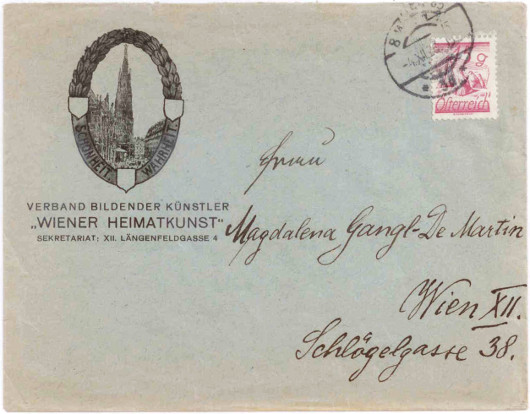 SCHÖNHEIT WAHRHEIT
VERBAND BILDENDER KÜNSTLER
„WIENER HEIMATKUNST“
SEKRETARIAT: XII. LÄNGENFELDGASSE 4
Österreich
Frau
Magdalena Gangl-De Martin
Wien XII.
Schlögelgasse 38.